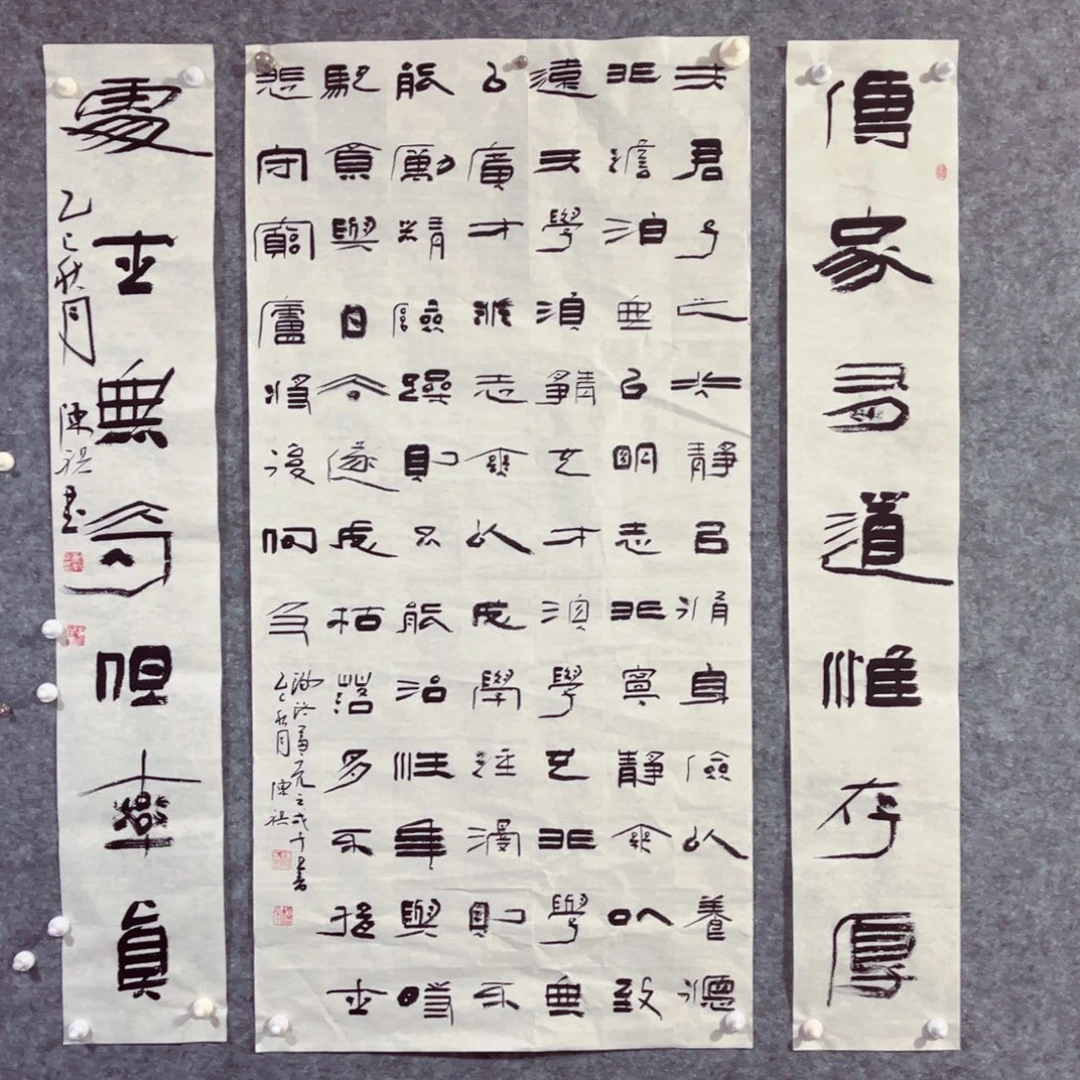 傳家有道惟存厚
夫君子之行靜以脩身儉以養德
非澹泊無以明志非寧靜無以致
遠夫學須靜也才須學也非學無
以廣才非志無以成學淫慢則不
能勵精險躁則不能治性年與時
馳意與日去遂成枯落多不接世
悲守窮廬將復何及
諸葛亮之戒子書
乙巳秋月 陳
處世無奇但率真
乙巳秋月 陳 書